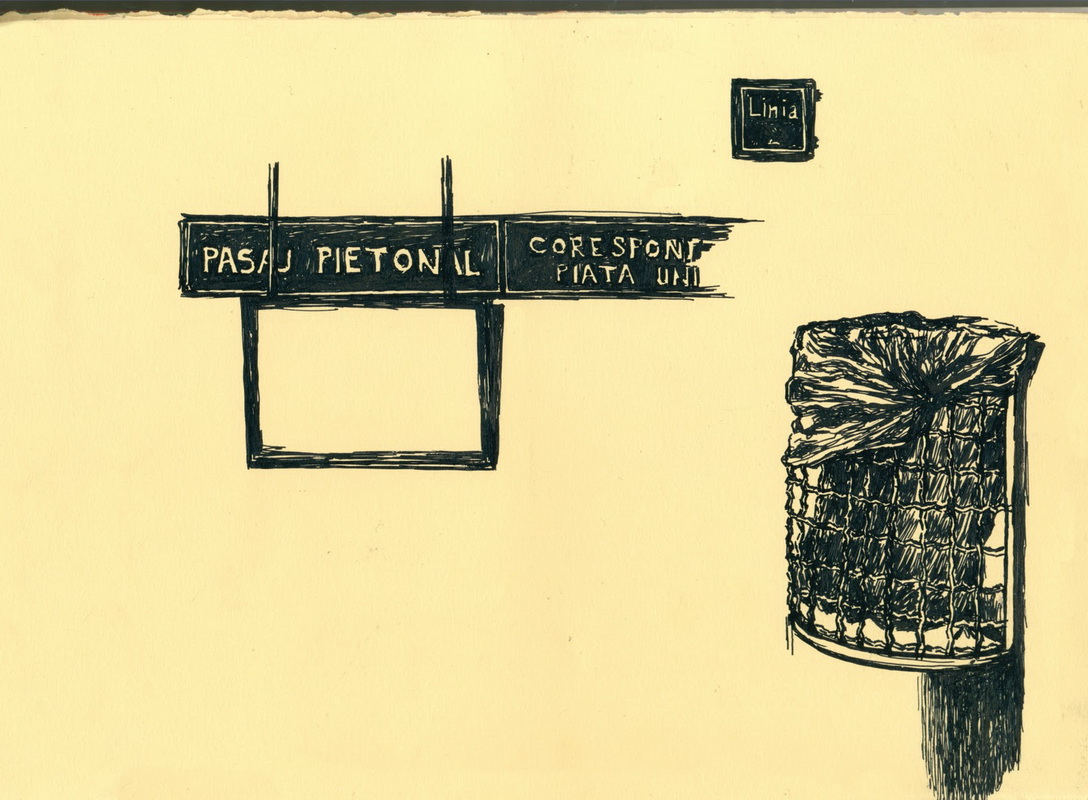 Linia
2
PASAJ PIETONAL
CORESPOND
PIATA UNI